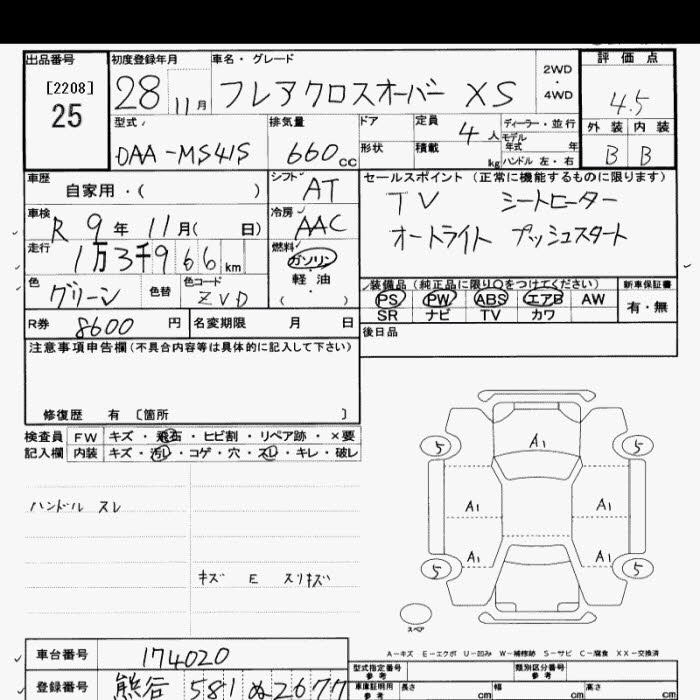 出品番号 初度登録年月 車名・グレード 評価点
[2208] 25 28 11月 フレアクロスオーバー XS 2WD・4WD 4.5
型式 排気量 ドア 定員 4人 ディーラー・並行 外装 内装
DAA-MS41S 660cc 形状 積載 kg モデル年式 年 ハンドル 左・右 B B
車歴 自家用・( ) シフト AT セールスポイント (正常に機能するものに限ります)
車検 R9年11月( 日) 冷房 AAC TV シートヒーター
走行 1万3千966km 燃料 ガソリン オートライト プッシュスタート
軽油 ( )
色 グリーン 色替 色コード ZVD 装備品 (純正品に限り○をつけてください) 新車保証書
PS PW ABS エアB AW 有・無
R券 8600円 名変期限 月 日 SR ナビ TV カワ
注意事項申告欄(不具合内容等は具体的に記入して下さい) 後日品
修復歴 有 〔箇所 〕
検査員 FW キズ・飛石・ヒビ割・リペア跡・×要
記入欄 内装 キズ・汚れ・コゲ・穴・スレ・キレ・破レ
A1
5 5
ハンドル スレ
A1 A1
A1 A1
キズ E スリキズ
5 5
スペア
A-キズ E-エクボ U-凹み W-補修跡 S-サビ C-腐食 XX-交換済
車台番号 174020
型式指定番号 参考 類別区分番号 参考
登録番号 熊谷 581 ぬ 2677
車庫証明用 参考 長さ cm 幅 cm 高さ cm